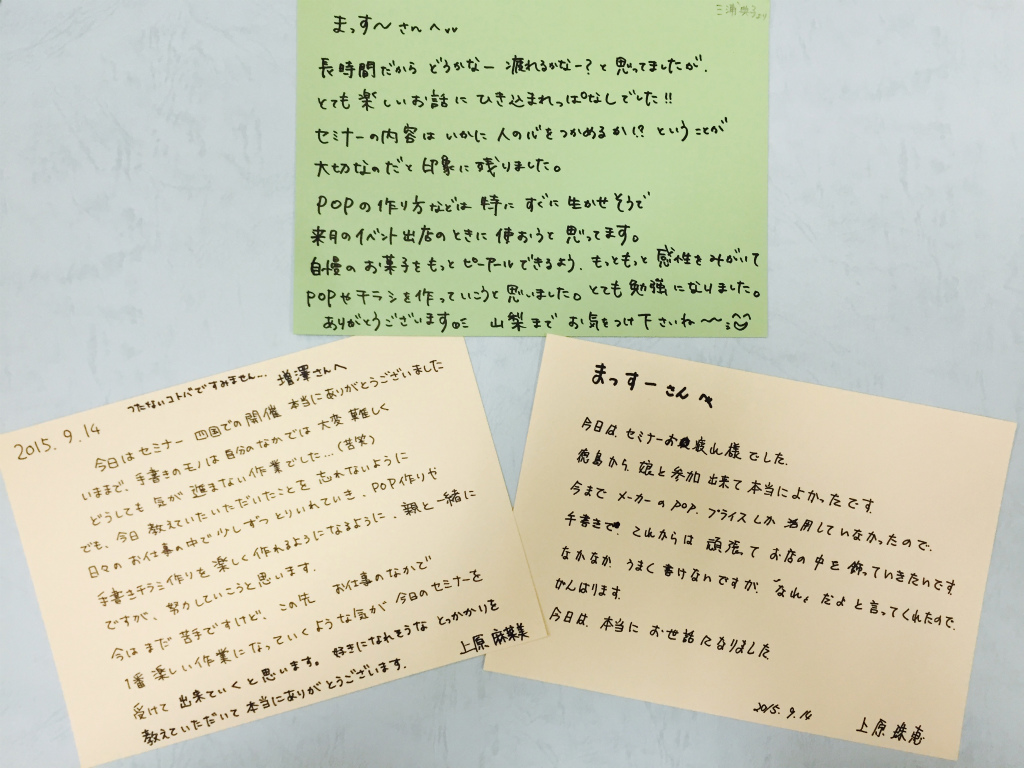 まっす〜さんへ
長時間だから どうかなー 疲れるかなー?と思ってましたが、
とても楽しいお話に ひき込まれっぱなしでした!!
セミナーの内容は いかに 人の心をつかめるか!?ということが
大切なのだと 印象に残りました。
POPの作り方などは 特に すぐに 生かせそうで
来月のイベント出店のときに 使おうと思ってます。
自慢の お菓子をもっと ピーアールできるよう、もっともっと 感性をみがいて
POPやチラシを作っていこうと思いました。とても勉強になりました。
ありがとうございます 山梨まで お気をつけ下さいね〜〜
つたないコトバですみません… 増澤さんへ
2015.9.14
今日はセミナー 四国での開催 本当にありがとうございました
いままで、手書きのモノは自分のなかでは 大変 難しく
どうしても 気が 進まない作業でした…(苦笑)
でも、今日 教えていただいたことを 忘れないように
日々のお仕事の中で少しずつとりいれていき、POP作りや
手書きチラシ作りを楽しく作れるようになるように、親と一緒に
ですが、努力していこうと思います。
今はまだ苦手ですけど、この先 お仕事のなかで
1番楽しい作業になっていくような気が 今日のセミナーを
受けて 出来ていくと思います。好きになれそうな とっかかりを
教えていただいて 本当にありがとうございます。
上原
まっすーさんへ
今日は、セミナーお疲れ様でした。
徳島から 娘と参加出来て本当によかったです。
今まで メーカーのPOP、プライスしか 活用していなかったので、
手書きで、これからは 頑張って お店の中を 飾っていきたいです。
なかなか うまく書けないですが、「なれ」だよと言ってくれたので、
がんばります。
今日は、本当に お世話になりました
2015.9.14
上原 珠恵